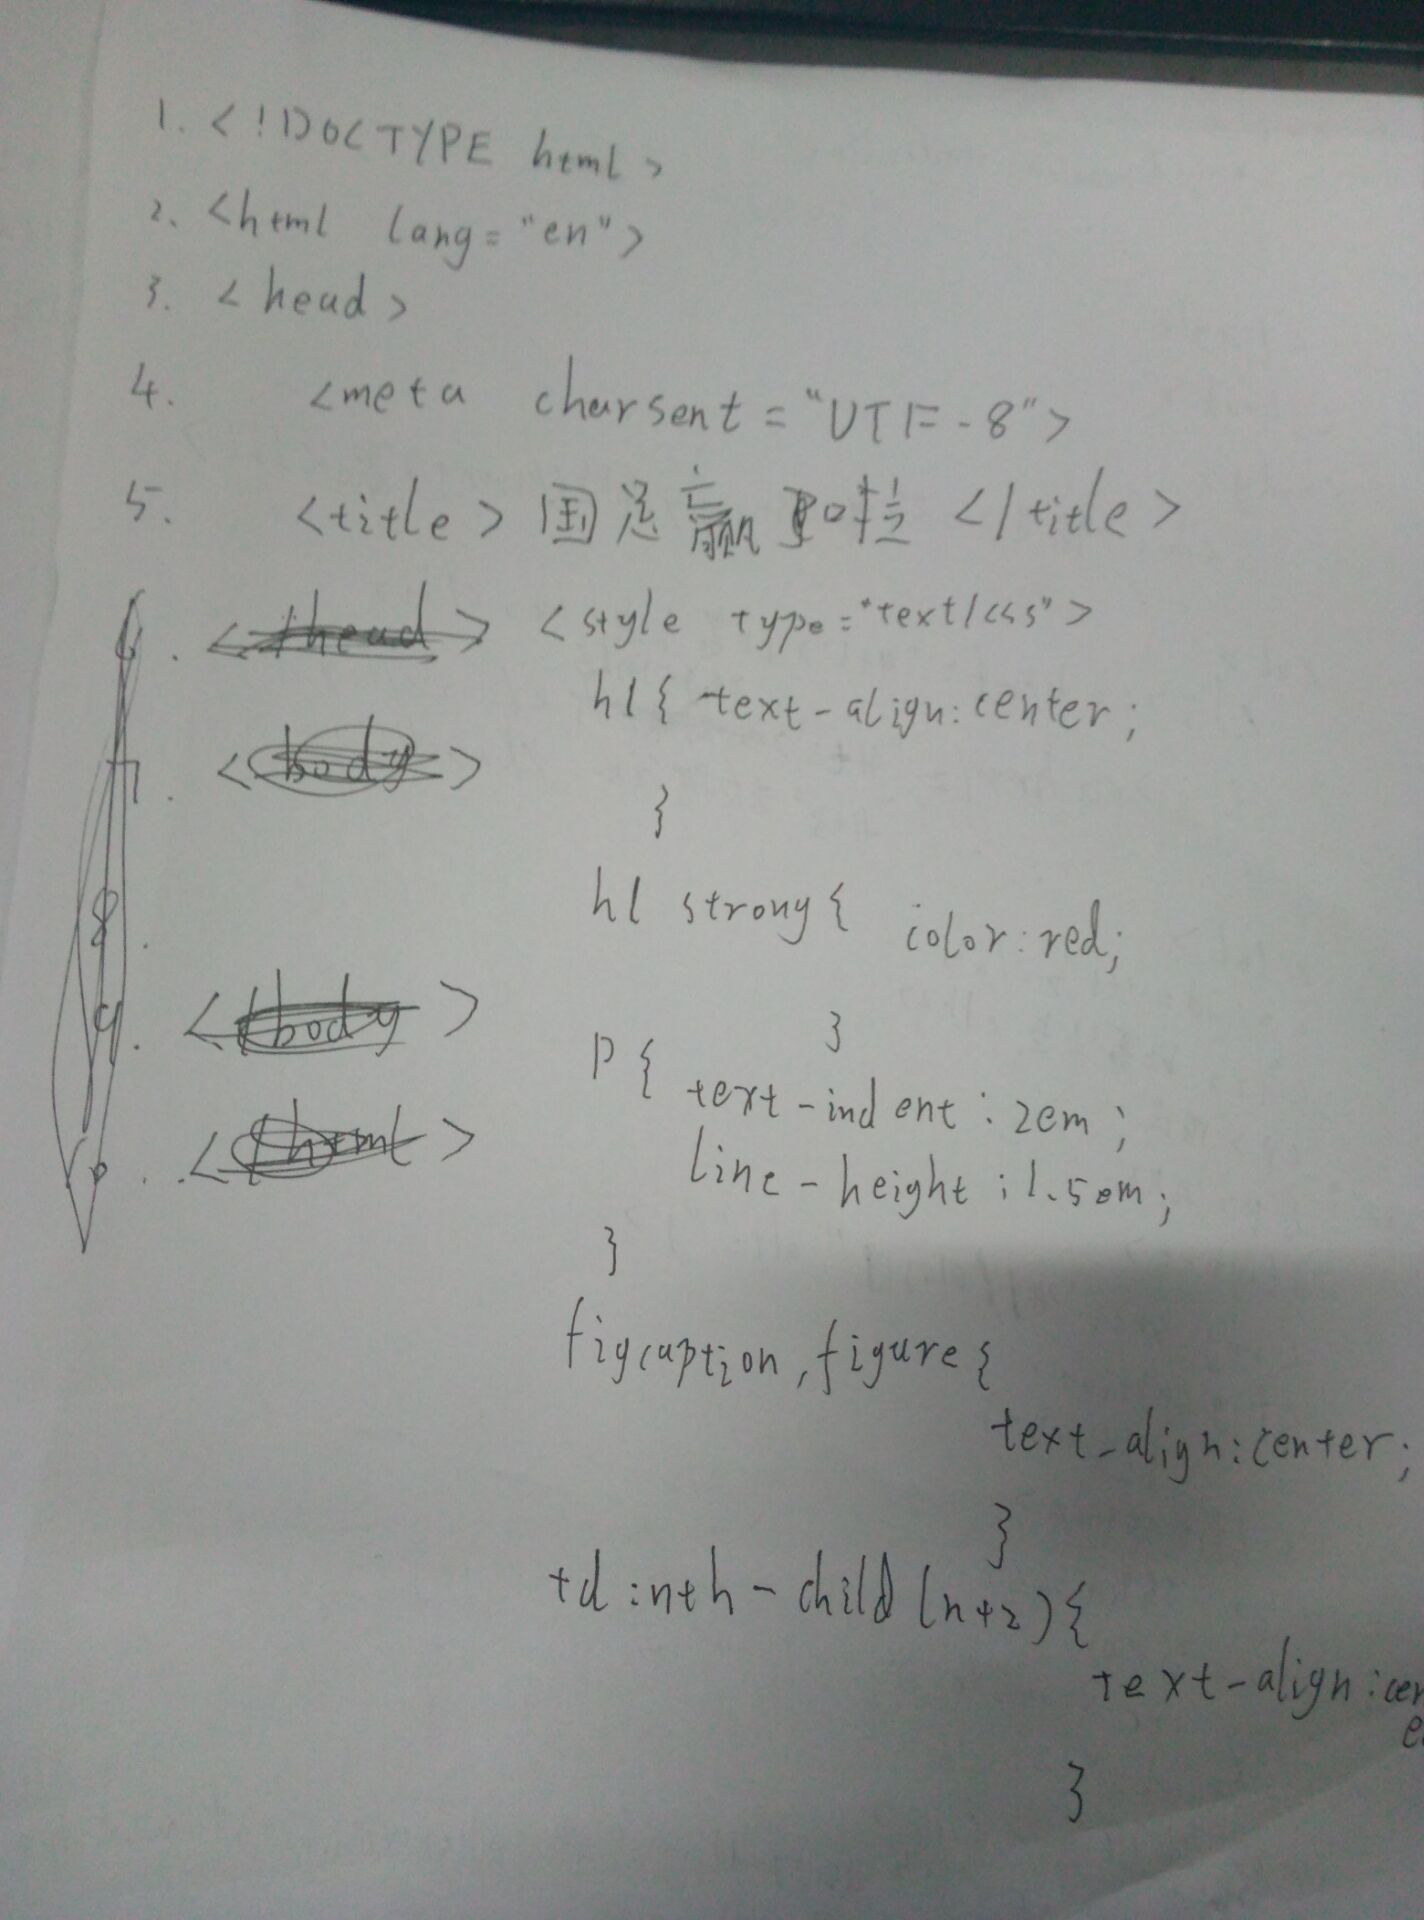 1. <!DOCTYPE html>
2. <html lang="en">
3. <head>
4. <meta charsent="UTF-8">
5. <title> 国总赢 啦 </title>
6. </head> <style type="text/css">
h1{ text-align:center;
7. <body>
}
8.
h1 strong{ color:red;
9. </body>
}
p{ text-indent:2em;
10. </html>
line-height:1.5em;
}
figcaption,figure{
text-align:center;
}
td:nth-child(n+2){
text-align:cen
}